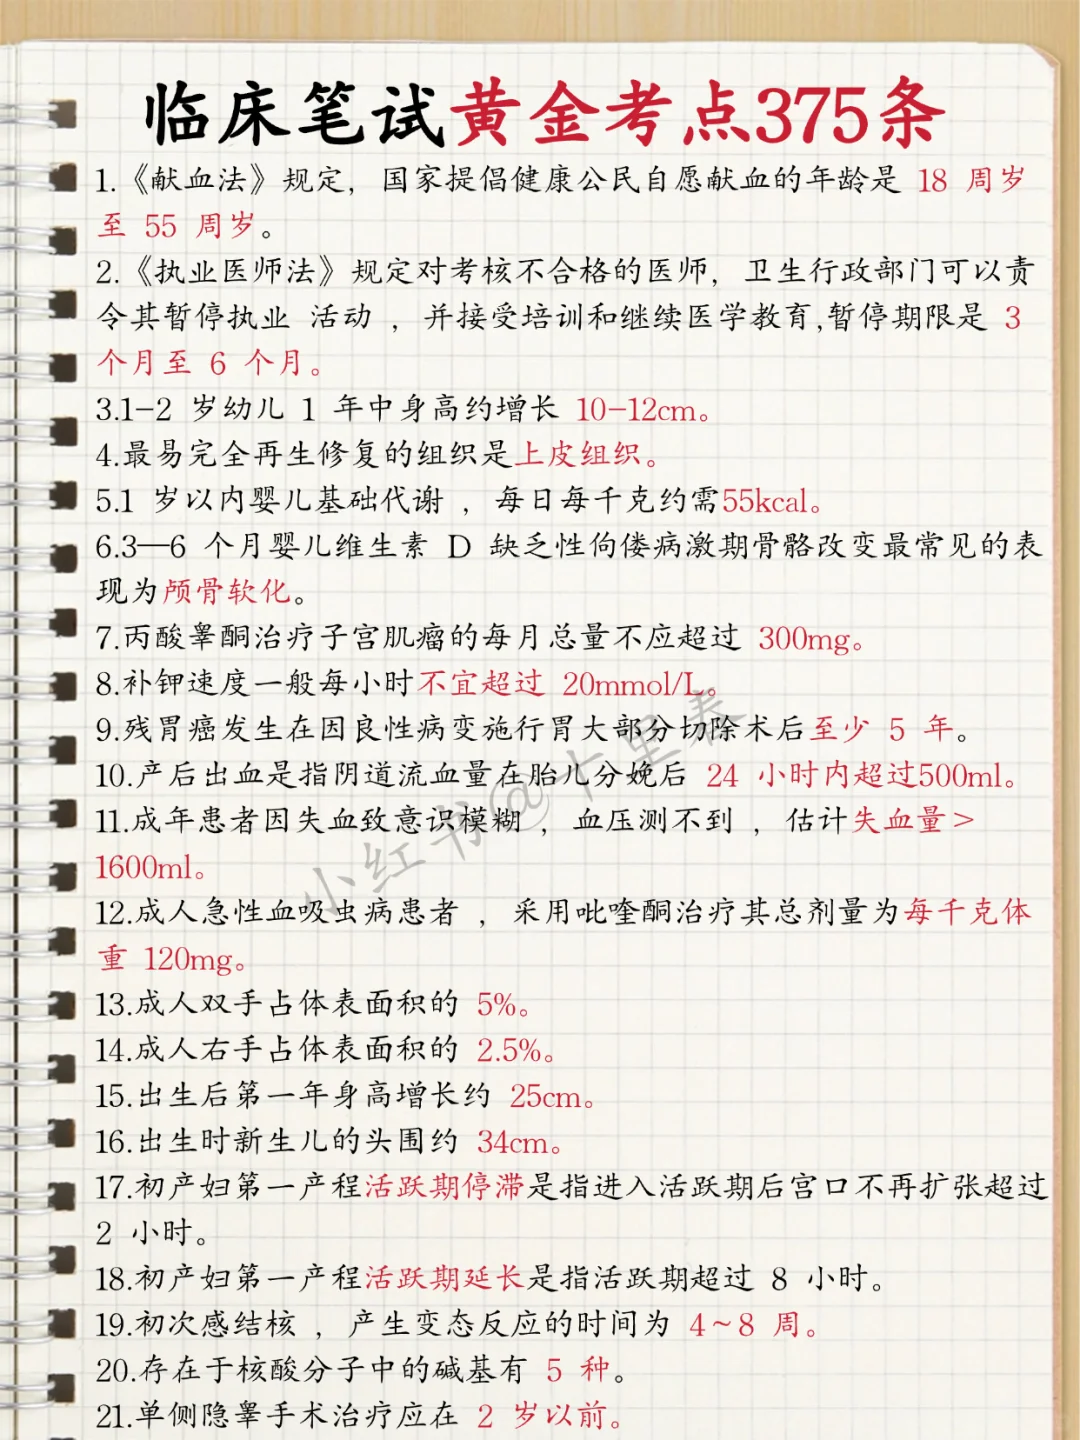 临床笔试黄金考点375条
1.《献血法》规定，国家提倡健康公民自愿献血的年龄是 18 周岁
至 55 周岁。
2.《执业医师法》规定对考核不合格的医师，卫生行政部门可以责
令其暂停执业 活动 ，并接受培训和继续医学教育,暂停期限是 3
个月至 6 个月。
3.1-2 岁幼儿 1 年中身高约增长 10-12cm。
4.最易完全再生修复的组织是上皮组织。
5.1 岁以内婴儿基础代谢 ，每日每千克约需55kcal。
6.3—6 个月婴儿维生素 D 缺乏性佝偻病激期骨骼改变最常见的表
现为颅骨软化。
7.丙酸睾酮治疗子宫肌瘤的每月总量不应超过 300mg。
8.补钾速度一般每小时不宜超过 20mmol/L。
9.残胃癌发生在因良性病变施行胃大部分切除术后至少 5 年。
10.产后出血是指阴道流血量在胎儿分娩后 24 小时内超过500ml。
11.成年患者因失血致意识模糊 ，血压测不到 ，估计失血量＞
1600ml。
12.成人急性血吸虫病患者 ，采用吡喹酮治疗其总剂量为每千克体
重 120mg。
13.成人双手占体表面积的 5%。
14.成人右手占体表面积的 2.5%。
15.出生后第一年身高增长约 25cm。
16.出生时新生儿的头围约 34cm。
17.初产妇第一产程活跃期停滞是指进入活跃期后宫口不再扩张超过
2 小时。
18.初产妇第一产程活跃期延长是指活跃期超过 8 小时。
19.初次感结核 ，产生变态反应的时间为 4~8 周。
20.存在于核酸分子中的碱基有 5 种。
21.单侧隐睾手术治疗应在 2 岁以前。
小红书@十里春